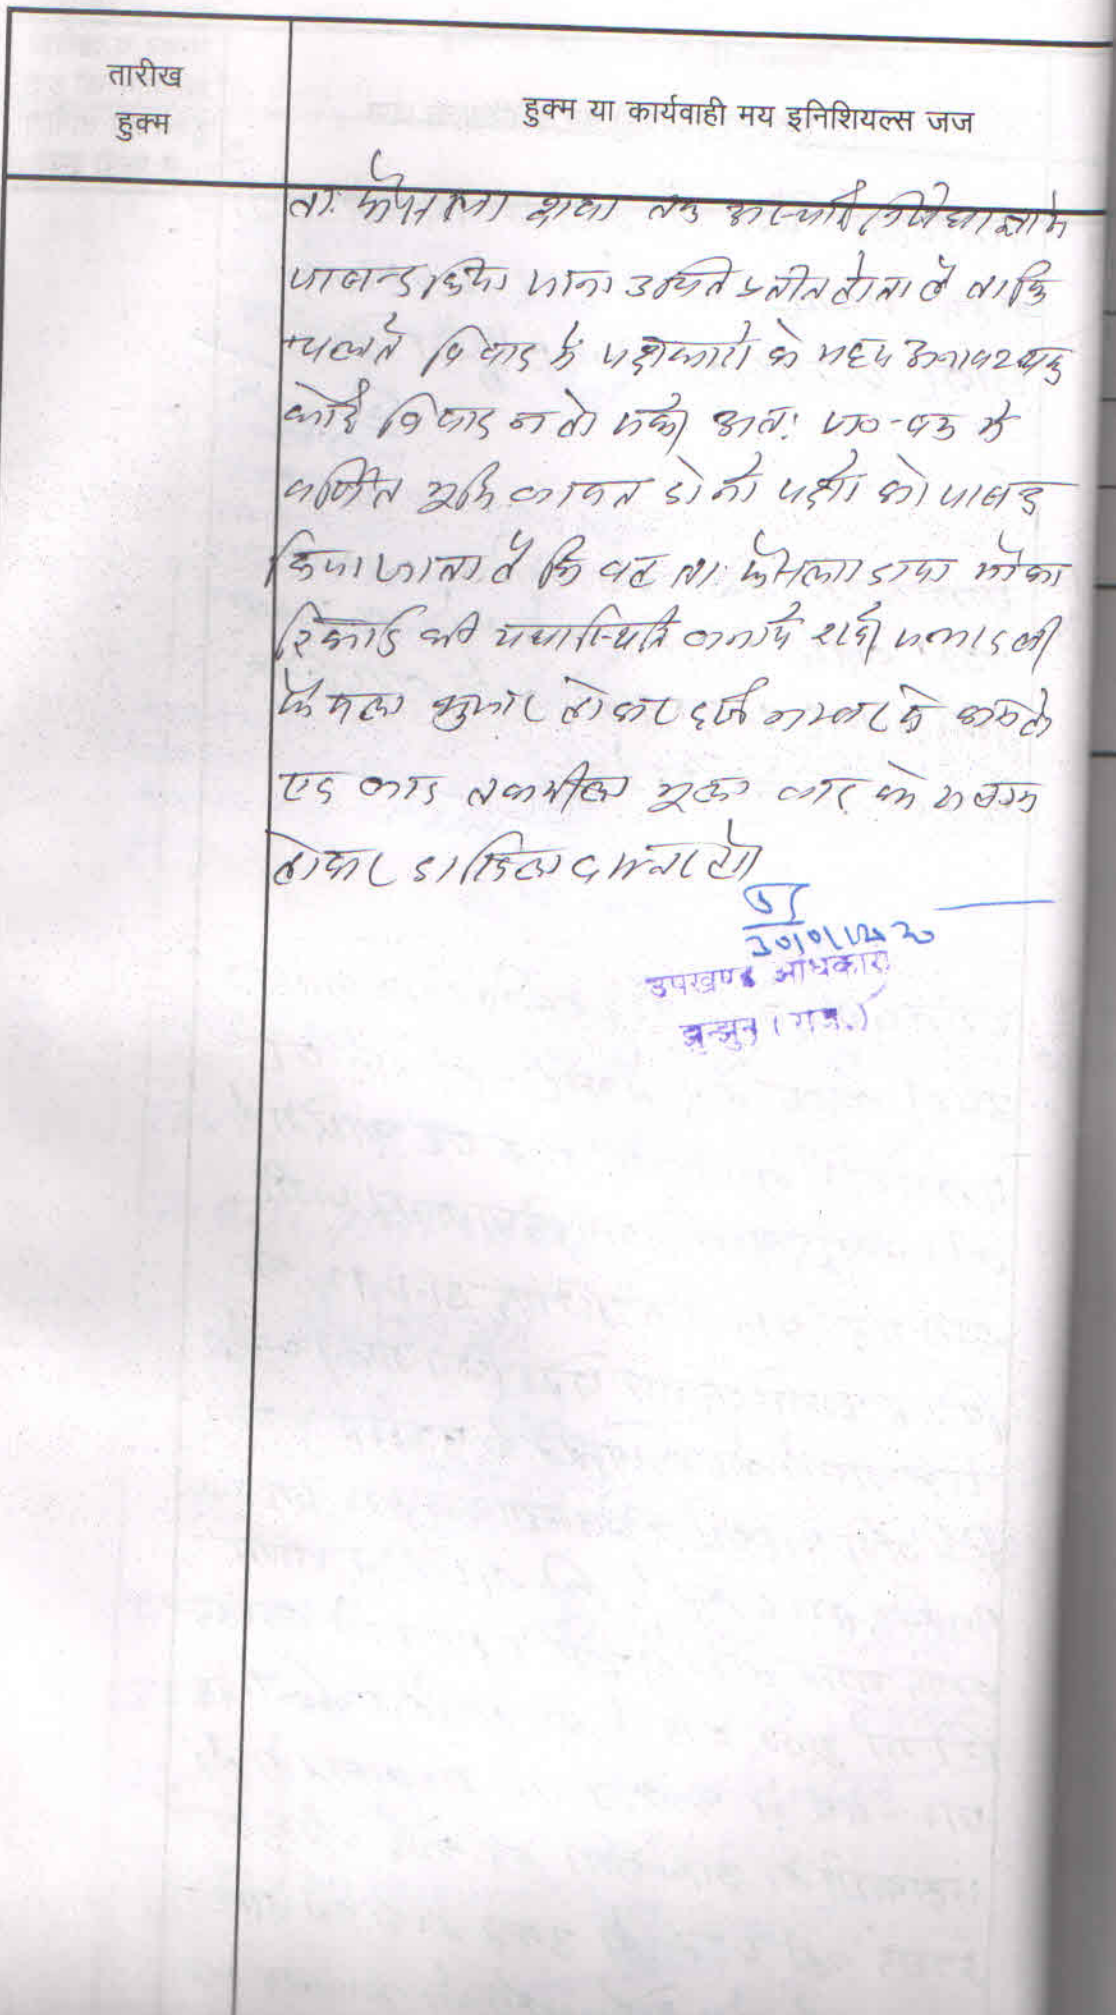 तारीख
हुक्म
हुक्म या कार्यवाही मय इनिशियल्स जज
ता. फैसला दावा तक अस्थाई निषेधाज्ञा से
पाबन्द किया जाना उचित प्रतीत होता है ताकि
चलते विवाद में पक्षकारों के मध्य अनावश्यक
कोई विवाद न हो सके। अतः प्रा०-पत्र में
वर्णित भूमि बाबत दोनों पक्षों को पाबन्द
किया जाता है कि वह ता. फैसला दावा मौका
रिकार्ड की यथास्थिति बनाये रखें। पत्रावली
फैसला शुमार होकर दर्ज नम्बर से कम हो
एवं बाद तकमील मूल वाद के संलग्न
होकर दाखिल दफ्तर हो।
30/01/2020
उपखण्ड अधिकारी
झुन्झुनू (राज.)